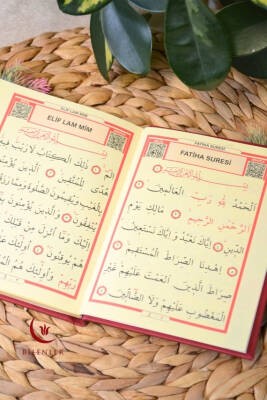 FATİHA SURESİ
FATİHA SURESİ
اَلْحَمْدُ لِلّٰهِ رَبِّ الْعَالَمِينَ
الرَّحْمٰنِ الرَّحِيمِ مَالِكِ يَوْمِ
الدِّينِ اِيَّاكَ نَعْبُدُ وَاِيَّاكَ نَسْتَعِينُ
اِهْدِنَا الصِّرَاطَ الْمُسْتَقِيمَ
صِرَاطَ الَّذِينَ اَنْعَمْتَ عَلَيْهِمْ غَيْرِ
الْمَغْضُوبِ عَلَيْهِمْ وَلَا الضَّالِّينَ
ELİF LAM MİM
ELİF LAM MİM
الٓمٓ ذٰلِكَ الْكِتَابُ لَا رَيْبَ فِيهِ
هُدًى لِلْمُتَّقِينَ اَلَّذِينَ يُؤْمِنُونَ
بِالْغَيْبِ وَيُقِيمُونَ الصَّلٰوةَ وَمِمَّا
يُنْفِقُونَ وَالَّذِينَ يُؤْمِنُونَ
اِلَيْكَ وَمَا اُنْزِلَ مِنْ قَبْلِكَ
هُمْ يُوقِنُونَ اُولٰئِكَ
رَبِّهِمْ وَاُولٰئِكَ هُمُ